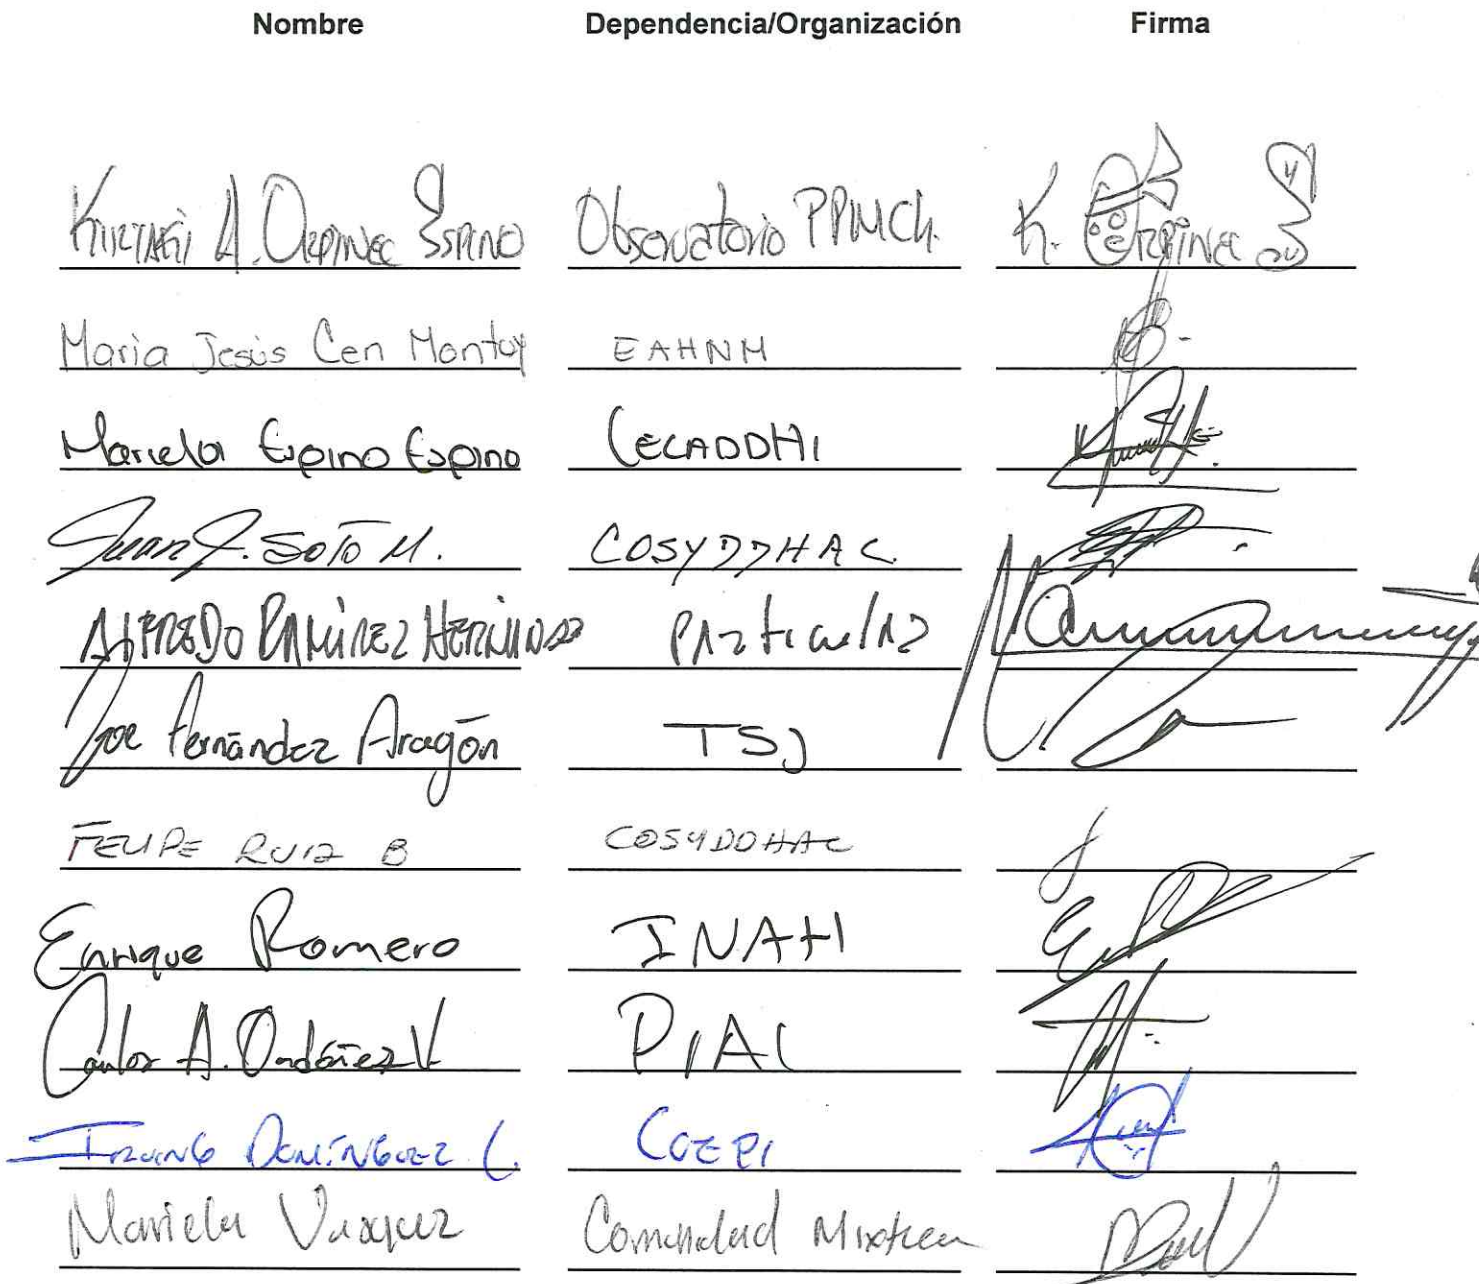 Nombre Dependencia/Organización Firma
A. Orpinel Espino Observatorio PPIMCh. K. Orpinel
Maria Jesús Cen Montuy EAHNM
Mariela Espino Espino CECADDHI
Juan J. SOTO M. COSYDDHAC
ALFREDO RAMÍREZ HERNÁNDEZ PArticulAr
Joe Fernández Aragón TSJ
FELIPE RUIZ B COSYDDHAC
Enrique Romero INAH
Carlos A. Ordóñez V. PIAI
IRVING DOMÍNGUEZ C. COEPI
Mariela Vazquez Comunidad Mixteca